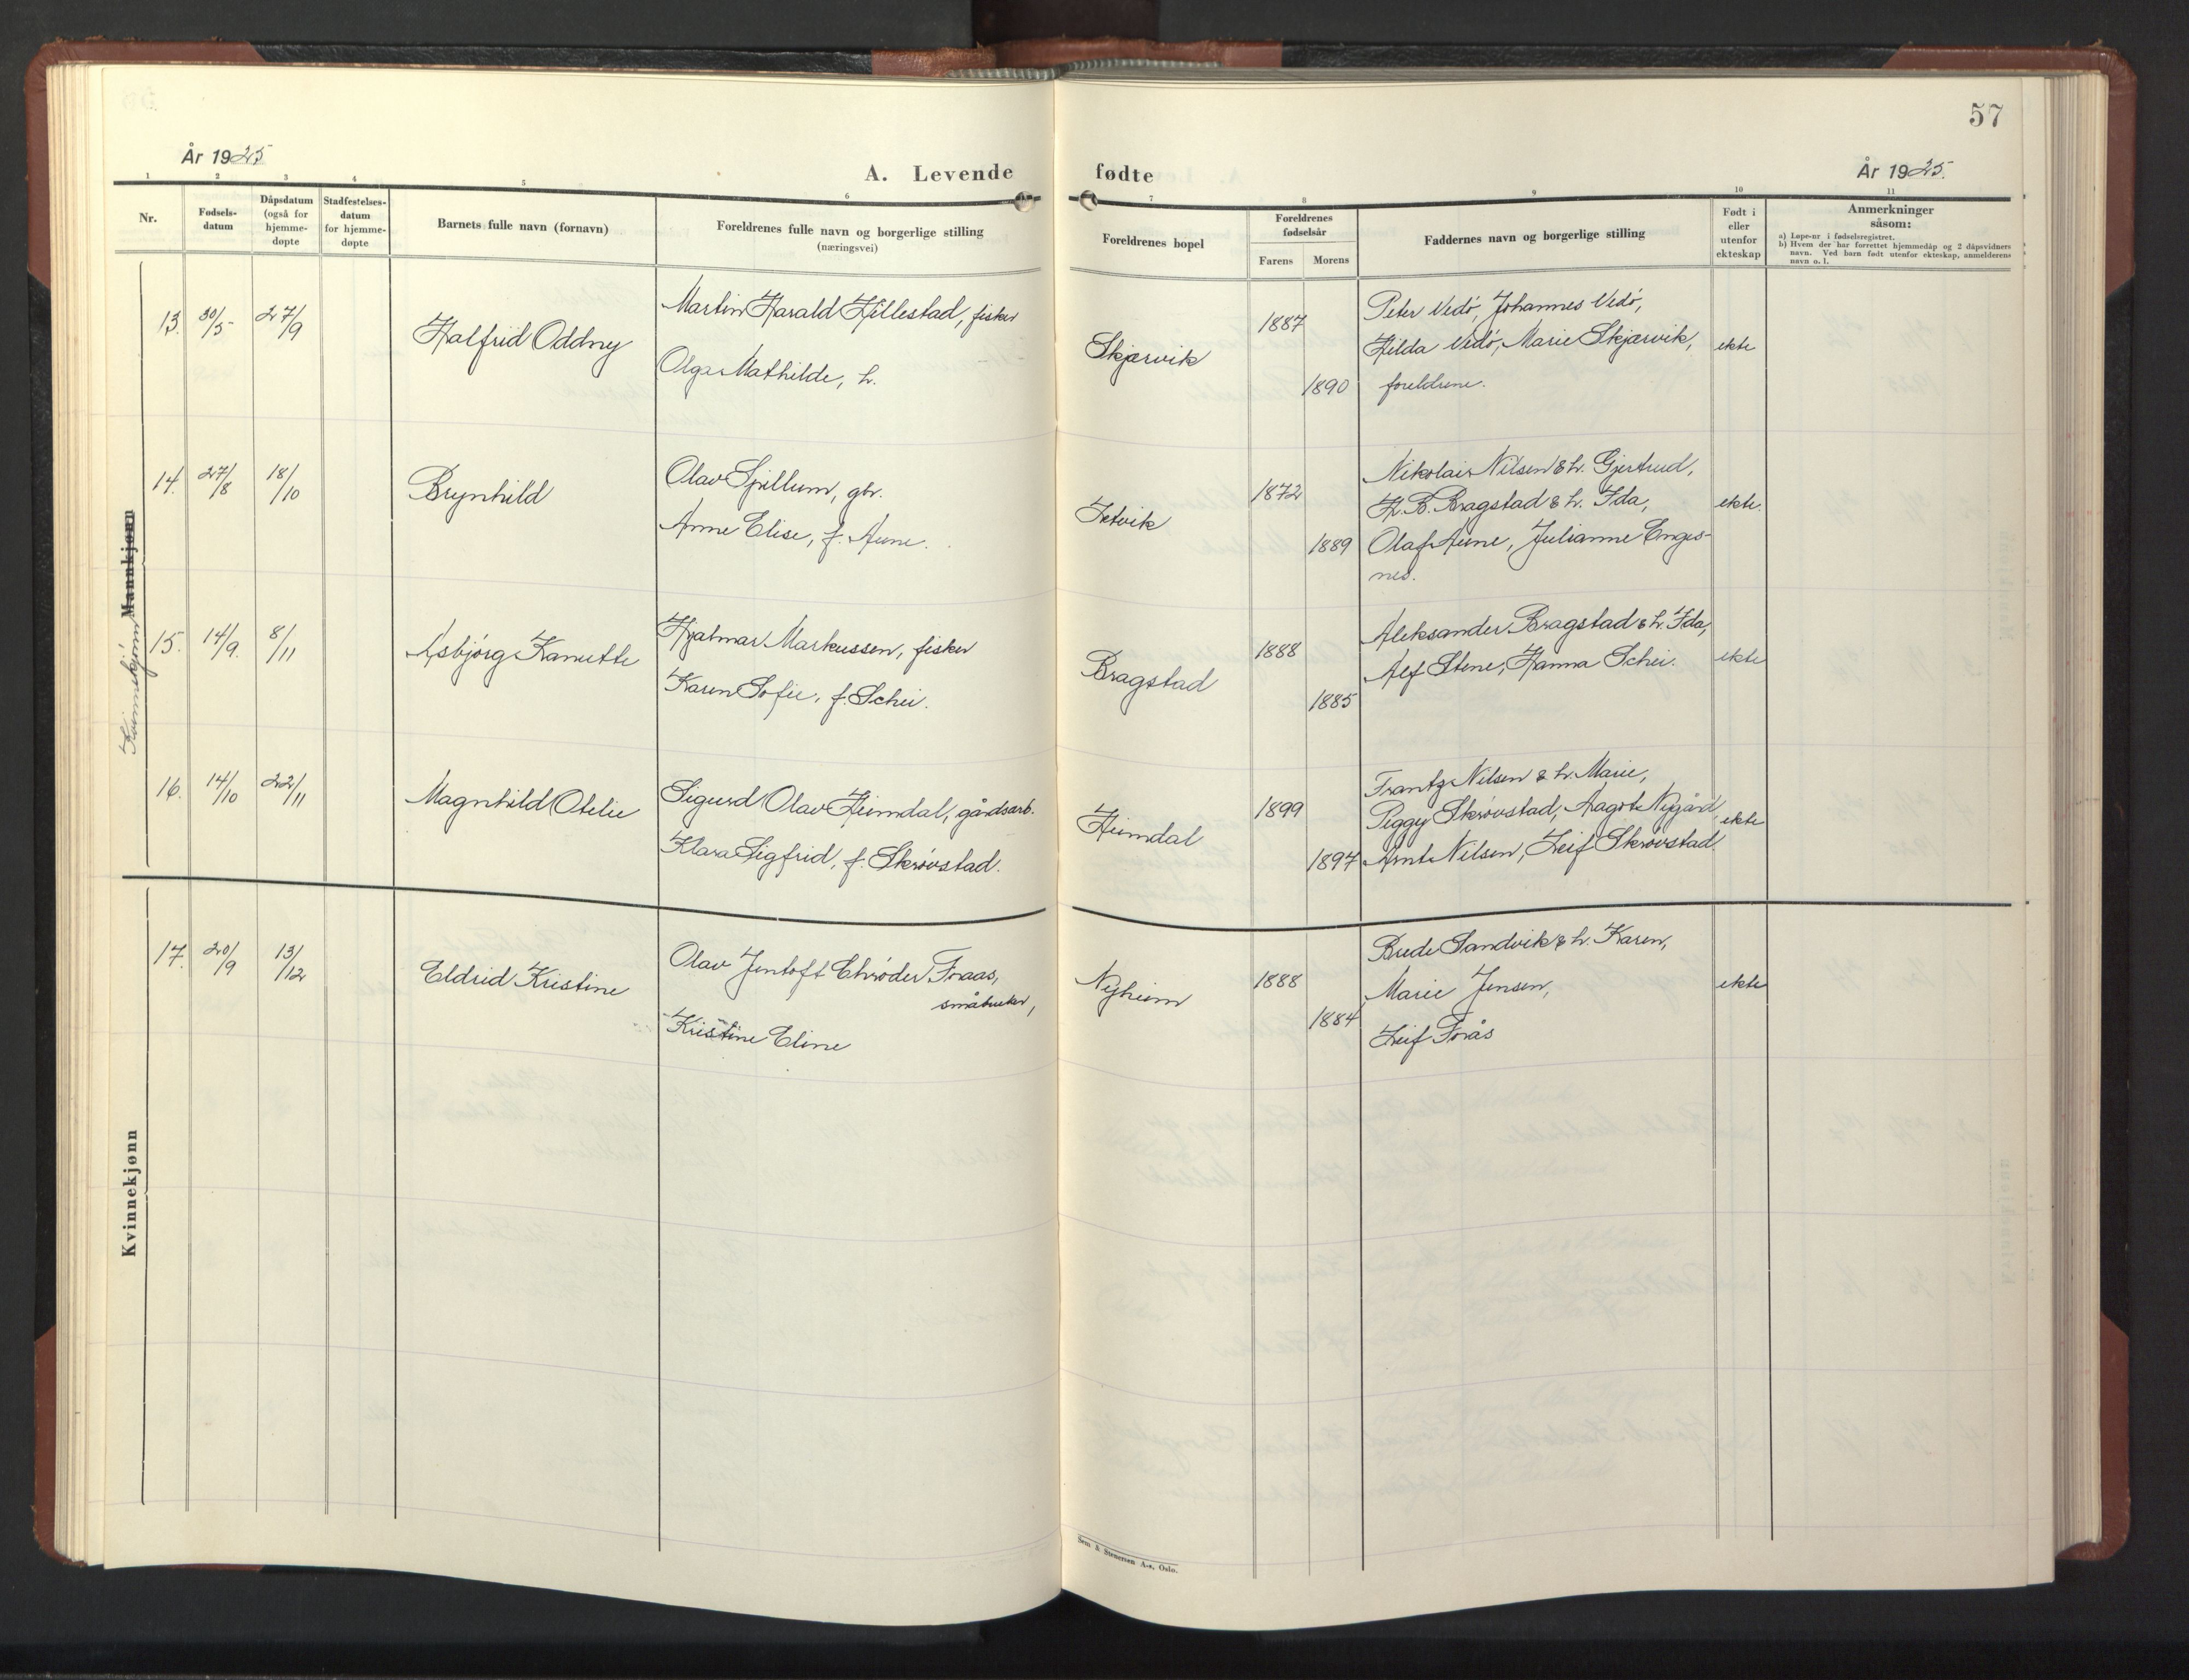 57
År 1925
A. Levende fødte
År 1925.
1 2 3 4 5 6 7 8 9 10 11
Nr.
Fødsels-
datum
Dåpsdatum
(også for
hjemme-
døpte
Stadfestelses-
datum
for hjemme-
døpte
Barnets fulle navn (fornavn)
Foreldrenes fulle navn og borgerlige stilling
(næringsvei)
Foreldrenes bopel
Foreldrenes
fødselsår
Farens
Morens
Faddernes navn og borgerlige stilling
Født i
eller
utenfor
ekteskap
Anmerkninger
såsom:
a) Løpe-nr i fødselsregistret.
b) Hvem der har forrettet hjemmedåp og 2 dåpsvidners
navn. Ved barn født utenfor ekteskap, anmelderens
navn o. l.
Mannkjønn
Kvinnekjønn
13. 30/5 27/9
Halfrid Oddny
Martin Harald Hillestad, fisker
Olga Mathilde, h.
Skjærvik
1887
1890
Peter Vedø, Johannes Vedø,
Hilda Vedø, Marie Skjærvik,
foreldrene.
ekte
14. 27/8 18/10
Brynhild
Olav Spillum, gbr.
Anne Elise, f. Aune.
Setvik
1872
1889
Nikolais Nilsen & h. Gjertrud,
H. B. Bragstad & h. Ida,
Olaf Aune, Julianne Enges-
nes.
ekte.
15. 14/9. 8/11
Asbjørg Kanutte
Hjalmar Markussen, fisker
Karen Sofie, f. Schei.
Bragstad
1888
1885
Aleksander Bragstad & h. Ida,
Alf Stene, Hanna Schei.
ekte
16. 14/10 22/11
Magnhild Otelie
Sigurd Olav Heimdal, gårdsarb.
Klara Sigfrid, f. Skrøvstad.
Heimdal
1899
1897
Frantz Nilsen & h. Marie,
Peggy Skrøvstad, Aagot Nygård,
Arnt Nilsen, Leif Skrøvstad.
ekte
Kvinnekjønn
17. 20/9 13/12
Eldrid Kristine
Olav Jentoft Chrøder Fraas,
småbruker,
Kristine Eline
Nyheim
1888
1884
Brede Sandvik & h. Karen,
Marie Jensen,
Leif Forås
ekte
Sem & Stenersen A-s, Oslo.